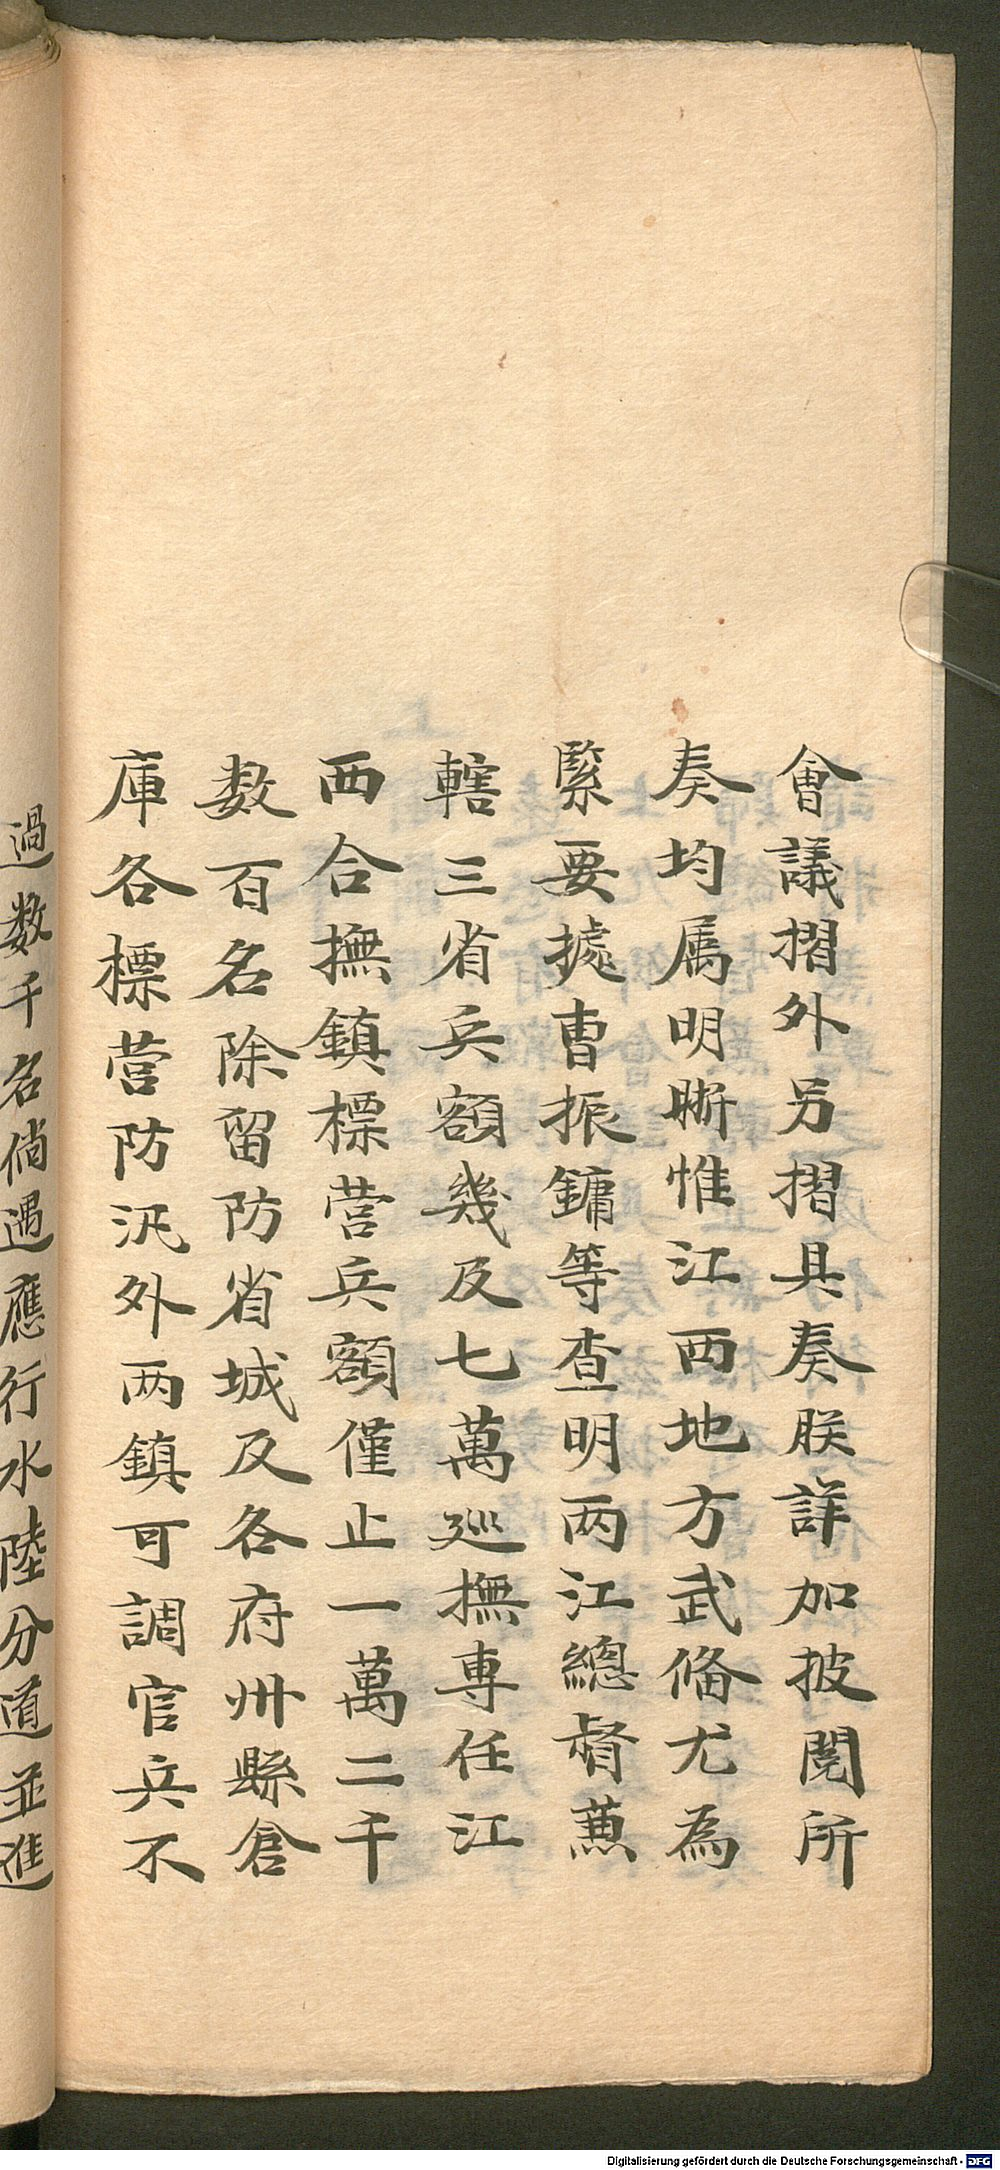 會議摺外另摺具奏朕詳加披閱所
奏均属明晰惟江西地方武俻尤為
緊要據曺振鏞等查明两江總督蕙
轄三省兵額幾及七萬巡撫専任江
西合撫鎮標营兵額僅止一萬二千
数百名除留防省城及各府州縣倉
庫各標营防汛外两鎮可調官兵不
過数千名倘遇應行水陸分道並進
Digitalisierung gefördert durch die Deutsche Forschungsgemeinschaft - DFG